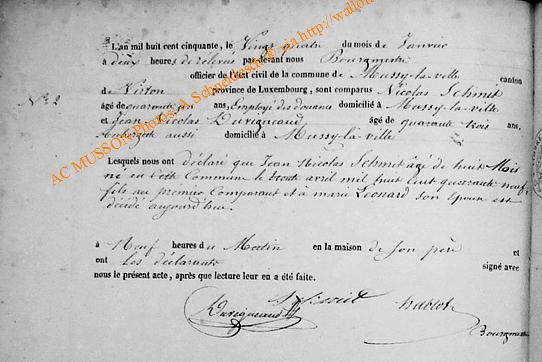 L'an mil huit cent cinquante, le Vingt quatre du mois de Janvier
à deux heures de relevée par-devant nous Bourgmestre
officier de l'état civil de la commune de Mussy-la-ville canton
de Virton province de Luxembourg, sont comparus Nicolas Schmet
N° 2
âgé de quarante ans, Employé des douanes domicilié à Mussy-la-ville
et Jean Nicolas Duriqueaud âgé de quarante trois ans,
Aubergiste aussi domicilié à Mussy-la-ville
Lesquels nous ont déclaré que Jean Nicolas Schmet âgé de huit Mois
né en cette Commune le trente avril mil huit cent quarante neuf
fils au premier Comparant et à marie Léonard son Epouse est
décédé aujourd'hui.
à Neuf heures du Matin en la maison de son père et
ont les déclarants signé avec
nous le présent acte, après que lecture leur en a été faite.
Duriqueaud
Bourgmestre
AC MUSSON Photos: A. Schneidersch @ via http://wallon